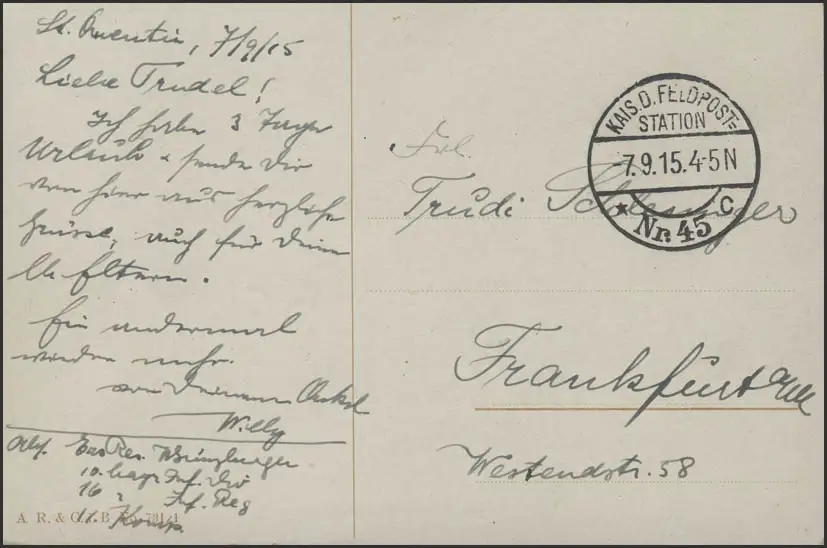 St. Quentin, 7/9/15
Liebe Trudel!
Ich habe 3 Tage
Urlaub & sende Dir
von hier aus herzliche
Grüsse, auch für Deine
lb Eltern.
Ein andermal
wieder mehr.
von Deinem Onkel
Willy
Abs. Ers Res.
10. bayr Inf. Div
16 " Inf. Reg
11. Komp.
A. R. & C. i. B.
Frl.
Trudi
Frankfurt a/M
Westendstr. 58
KAIS. D. FELDPOST=
STATION
-7.9.15.4-5N
* Nr. 45 C